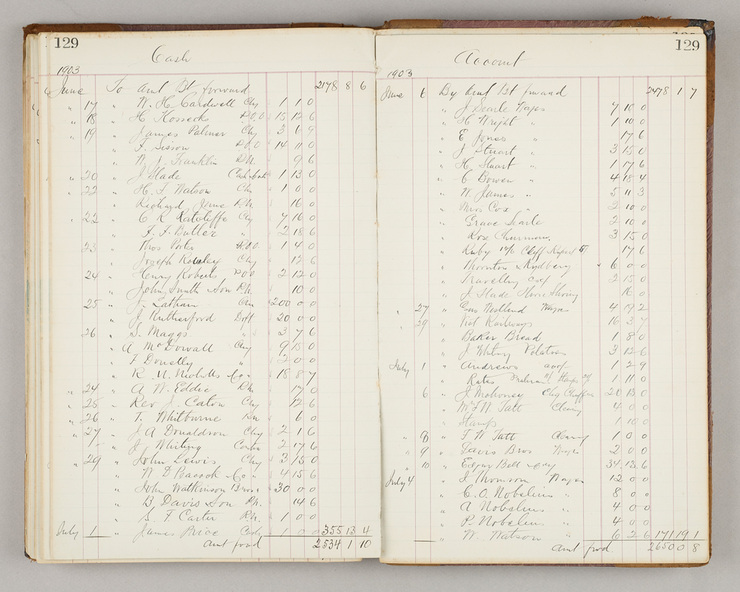 129
Cash
1903
June " To amt Bt forward 2178 8 6
" 17 " W. H. Cardwell Chq 1 1 0
" 18 " H Hossack P.O.O 15 12 6
" 19 " James Palmer Chq 3 6 9
" F. Sisson P.O 14 11 0
" W. J. Franklin P.N. 9 6
" 20 " J Slade 1 13 0
" 22 " H. J. Watson Chq 1 0 0
" Richard Jane P.N. 10 0
" 22 " C R Ratcliffe Chq 7 10 0
" F. F. Butler " 2 18 6
" 23 " Thos 1 4 0
" Joseph Chq 12 6
" 24 " Henry Roberts P.O.O 2 12 0
" John Smith Son P.N. 10 0
" 25 " J. Latham 200 0 0
" J Rutherford Dft 20 0 0
" 26 " S. Maggs " 3 7 6
" A McDowall Chq 9 15 0
" F Donelly " 2 0 0
" R. M. Nicholls Co " 18 8 7
" 24 " A. W. Eddie P.N. 17 0
" 25 " Rev J. Caton Chq 12 6
" 26 " T. Whitburne P.N. 6 0
" 27 " J A Donaldson Chq 2 1 6
" J. Whiting 2 17 6
" 29 " John Lewis Chq 3 15 0
" W. D Peacock Co " 4 15 6
" John Watkinson Bros " 30 0 0
" B. Davis Son P.N. 14 6
" S. F. Carter P.N. 1 0 0
July 1 " James Price 1 0 0 355 13 4
amt fwd 2534 1 10
129
Account
1903
June 6 By amt Bt forward 2478 1 7
" J Searle Wages 4 10 0
" H Wright " 1 10 0
" E Jones " 17 6
" J Stuart " 3 15 0
" H. Stuart " 1 17 6
" C Bowen " 4 18 4
" W. James " 5 11 3
" Miss Cox " 2 10 0
" Grace Searle 2 10 0
" 3 15 0
" Ruby 17 6
" Thornton 6 0 0
" Travelling exp 2 15 0
" J Slade Horse Shoeing
" 27 " Geo Westland Wages 4 14 2
" 29 " Vict Railways 16 3 7
" Baker Bread 1 8 0
" J Whiting Potatoes 3 12 6
July 1 " Andrews 1 2 9
" Rates 1 11 0
" 6 " J. Mahoney 20 13 0
" W Tatt Cleaning 4 0 0
" Stamps 1 10 0
" 8 " F W Tatt Cleaning 1 0 0
" 9 " Davis Bros Wages 2 0 0
" 10 " Bell 34 13 6
July 4 " J Thomson Wages 12 0 0
" C. O. Nobelius " 8 0 0
" A Nobelius " 4 0 0
" P. Nobelius " 4 0 0
" W Watson " 6 2 6 171 19 1
amt fwd 2650 0 8